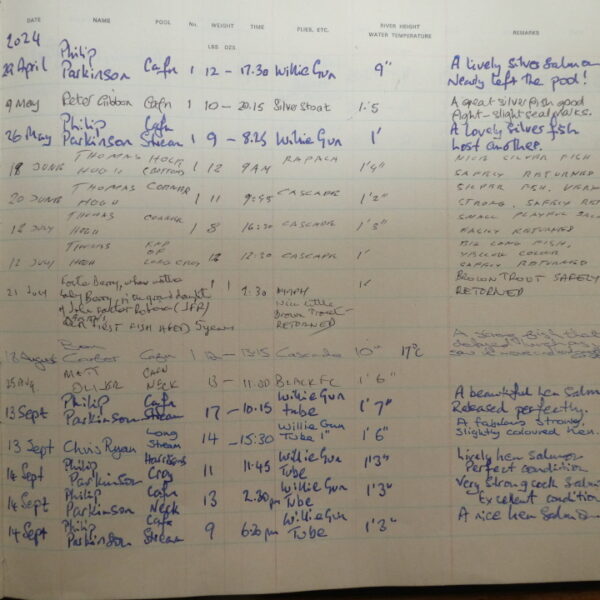 DATE NAME POOL No. WEIGHT TIME FLIES, ETC. RIVER HEIGHT REMARKS
LBS OZS. WATER TEMPERATURE
2024
29 April Philip Parkinson Cafn 1 12 - 17.30 Willie Gun 9" A lively silver salmon
Nearly left the pool!
9 May Peter Gibbon Cafn 1 10 - 20.15 Silver Stoat 1.5 A great silver fish good
fight - slight seal marks.
26 May Philip Parkinson Cafn Stream 1 9 - 8.25 Willie Gun 1' A lovely silver fish
Lost another.
18 JUNE THOMAS 1 12 9AM RAPALA 1'4" NICE SILVER FISH
SAFELY RETURNED
20 JUNE THOMAS HUGH CORNER 1 11 9:45 CASCADE 1'2" SILVER FISH, VERY
STRONG, SAFELY
12 JULY THOMAS HUGH CORNER 1 8 16:30 CASCADE 1'3" SMALL PLAYFUL
EASILY RETURNED
12 JULY THOMAS HUGH 12:30 CASCADE 1' BIG LONG FISH,
YELLOW COLOUR
SAFELY RETURNED
1 1 7.30 BROWN TROUT SAFELY
RETURNED
Nice Little
Brown Trout -
RETURNED
FIRST FISH AGED 5 years
August Ben Cafn 1 12 - 13.15 Cascade 10" 17°C
25 Aug. MATT OLIVER CAFN NECK 13 - 11.00 BLACK F.C. 1'6"
13 Sept Philip Parkinson Cafn Stream 17 - 10.15 Willie Gun tube 1'7" A beautiful hen Salmon
Released perfectly.
13 Sept Chris Ryan Long Stream 14 - 15:30 Willie Gun Tube 1" 1'6" A fabulous strong,
slightly coloured Hen.
14 Sept Philip Parkinson Harrisons Crag 11 11.45 Willie Gun Tube 1'3" Lively hen salmon
Perfect condition
14 Sept Philip Parkinson Cafn Neck 13 2.30pm Willie Gun Tube 1'3" Very strong cock Salmon
Excellent condition
14 Sept Philip Parkinson Cafn Stream 9 Willie Gun Tube 1'3" A nice hen Salmon